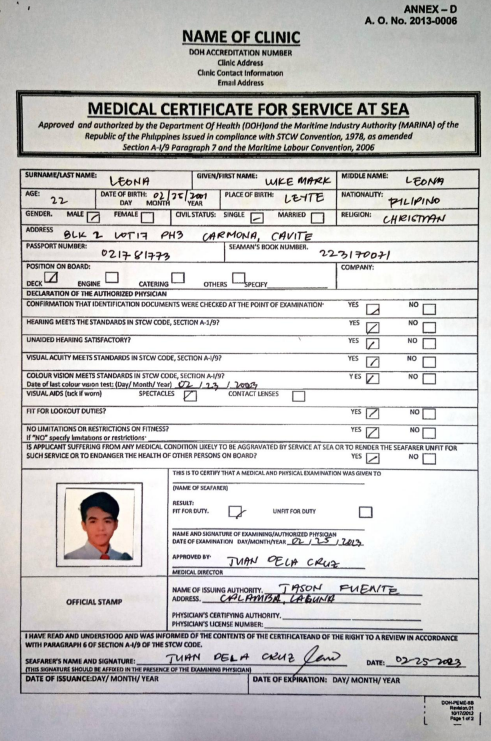 ANNEX – D
A. O. No. 2013-0006
NAME OF CLINIC
DOH ACCREDITATION NUMBER
Clinic Address
Clinic Contact Information
Email Address
MEDICAL CERTIFICATE FOR SERVICE AT SEA
Approved and authorized by the Department Of Health (DOH)and the Maritime Industry Authority (MARINA) of the
Republic of the Philippines Issued in compliance with STCW Convention, 1978, as amended
Section A-I/9 Paragraph 7 and the Maritime Labour Convention, 2006
SURNAME/LAST NAME: LEONA GIVEN/FIRST NAME: LUKE MARK MIDDLE NAME: LEONA
AGE: 22 DATE OF BIRTH: 02 / 25 / 2001 DAY MONTH YEAR PLACE OF BIRTH: LEYTE NATIONALITY: PILIPINO
GENDER. MALE FEMALE CIVIL STATUS: SINGLE MARRIED RELIGION: CHRISTIAN
ADDRESS BLK 2 LOT 17 PH3 CARMONA, CAVITE
PASSPORT NUMBER: 021781773 SEAMAN'S BOOK NUMBER. 223170071
POSITION ON BOARD: COMPANY:
DECK ENGINE CATERING OTHERS SPECIFY
DECLARATION OF THE AUTHORIZED PHYSICIAN
CONFIRMATION THAT IDENTIFICATION DOCUMENTS WERE CHECKED AT THE POINT OF EXAMINATION· YES NO
HEARING MEETS THE STANDARDS IN STCW CODE, SECTION A-1/9? YES NO
UNAIDED HEARING SATISFACTORY? YES NO
VISUAL ACUITY MEETS STANDARDS IN STCW CODE, SECTION A-I/9? YES NO
COLOUR VISION MEETS STANDARDS IN STCW CODE, SECTION A-I/9? YES NO
Date of last colour vision test: (Day/ Month/ Year) 02 / 23 / 2023
VISUAL AIDS (tick if worn) SPECTACLES CONTACT LENSES
FIT FOR LOOKOUT DUTIES? YES NO
NO LIMITATIONS OR RESTRICTIONS ON FITNESS? YES NO
If "NO" specify limitations or restrictions·
IS APPLICANT SUFFERING FROM ANY MEDICAL CONDITION LIKELY TO BE AGGRAVATED BY SERVICE AT SEA OR TO RENDER THE SEAFARER UNFIT FOR
SUCH SERVICE OR TO ENDANGER THE HEALTH OF OTHER PERSONS ON BOARD? YES NO
THIS IS TO CERTIFY THAT A MEDICAL AND PHYSICAL EXAMINATION WAS GIVEN TO
(NAME OF SEAFARER)
RESULT:
FIT FOR DUTY. UNFIT FOR DUTY
NAME AND SIGNATURE OF EXAMINING/AUTHORIZED PHYSICIAN
DATE OF EXAMINATION DAY/MONTH/YEAR 02 / 25 / 2023
APPROVED BY· JUAN DELA CRUZ
MEDICAL DIRECTOR
OFFICIAL STAMP
NAME OF ISSUING AUTHORITY. JASON FUENTE
ADDRESS. CALAMBA, LAGUNA
PHYSICIAN'S CERTIFYING AUTHORITY.
PHYSICIAN'S LICENSE NUMBER:
I HAVE READ AND UNDERSTOOD AND WAS INFORMED OF THE CONTENTS OF THE CERTIFICATEAND OF THE RIGHT TO A REVIEW IN ACCORDANCE
WITH PARAGRAPH 6 OF SECTION A-I/9 OF THE STCW CODE.
SEAFARER'S NAME AND SIGNATURE: JUAN DELA CRUZ DATE: 02-25-2023
(THIS SIGNATURE SHOULD BE AFFIXED IN THE PRESENCE OF THE EXAMINING PHYSICIAN)
DATE OF ISSUANCE:DAY/ MONTH/ YEAR DATE OF EXPIRATION: DAY/ MONTH/ YEAR
DOH-PEME-SB
Revision:01
10/17/2013
Page 1 of 2